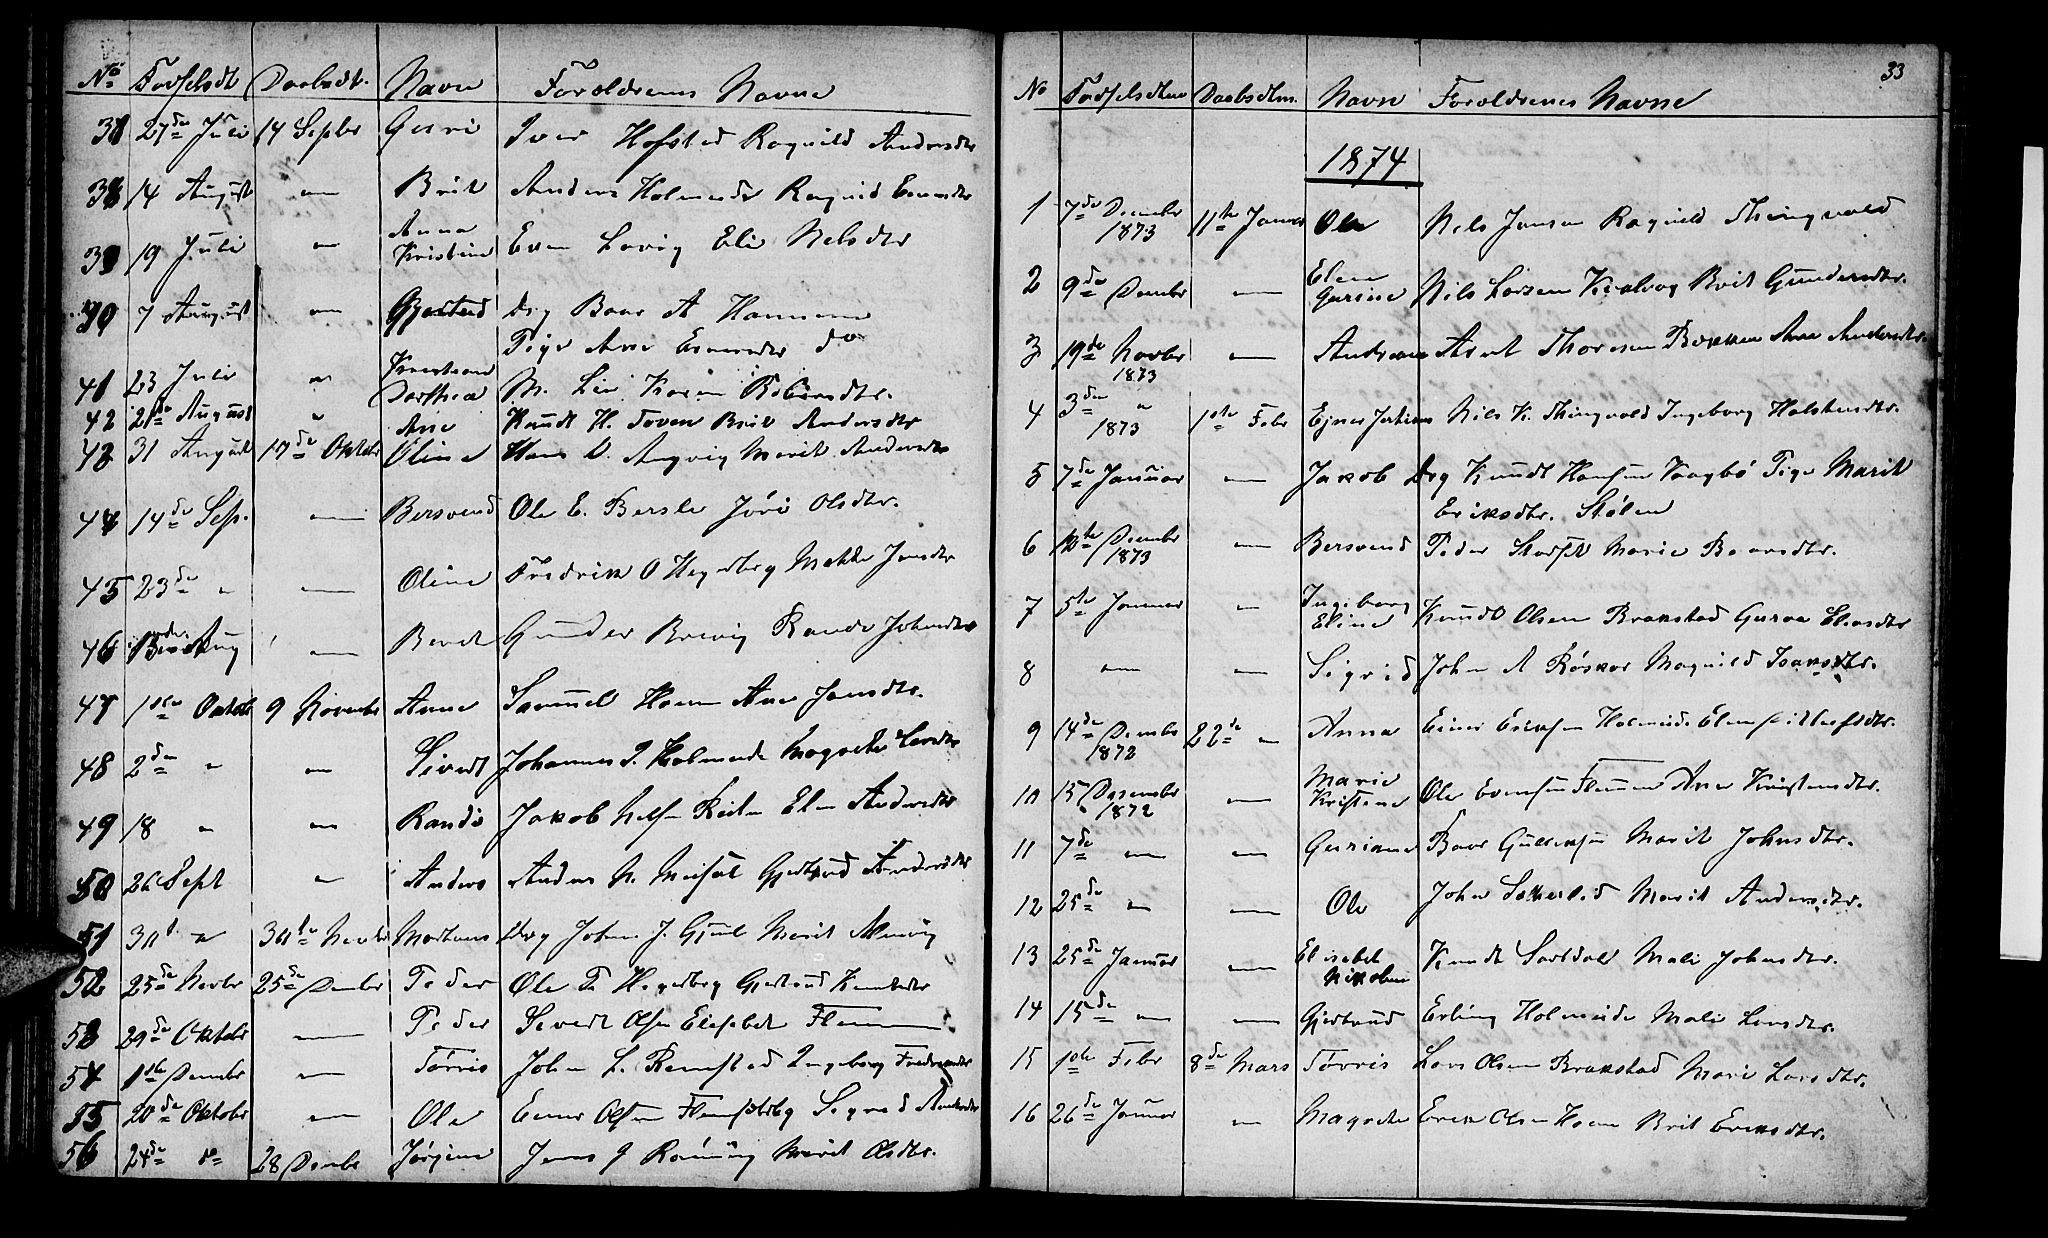 No Fødselsdt Daabsdt. Navn Forældrenes Navne
38 27de Juli 14 Septbr Guri Iver Hofstad Ragnild Andersdtr
38 14 August — Brit Anders Holmeide Ragnild
39 19 Juli — Anna Kristine Even Lervig Eli Nelsdtr
40 7 August — Gjertrud Ug Baar A Hansen
Pige Ane do
41 23 Juli " Dorthea M. Lie Karen
42 21de August " Ane Knudt H. Toven Brit Andersdtr
43 31 August 17de Oktobr Oline Hans O. Angvig Marit Andersdtr
44 14de Sep. — Bersvend Ole E. Bersle Jóri Olsdtr.
45 23de " — Oline Fredrik O Hegerberg Mette Jonsdtr
46 Aug — Berit Gunder Brevig Randi Johnsdtr
47 1ste Oktobr 9 Novembr Anne Samuel Hoem Ane Jonsdtr.
48 2den " — Sivert Johannes Holmeide Magrethe Larsdtr
49 18 " — Randi Jakob Nelsen Reiten Elen Andersdtr
50 26 Sept " Anders Anders N. Meisal Gjertrud Andersdtr
51 30t " 30te Novbr Ug John J. Gjul Marit
52 25de Novbr 25de Dembr Peder Ole P. Hegerberg Gjertrud Knudsdtr
53 29de Oktobr — Peder Sivert Olsen Elisebet Flemm
54 1ste Dembr — Tørris John L. Remstad Ingeborg
55 20de Oktobr — Ole Einer Olsen Sigrid Andersdtr
56 24de " 28 Dembr Jørgine Jens J Róning Marit Olsdtr.
33
No Fødselsdtm Daabsdtm. Navn Forældrenes Navne
1874
1 7de December 1873 11te Januar Ole Nils Jonsen Ragnild Thingvold
2 9de Dembr — Elen Gurine Nils Larsen Kvalvog Brit Gundersdtr.
3 19de Novbr 1873 — Andreas Arnt Thoresen Bakken Ane Andersdtr.
4 3de " 1873 1ste Febr Ejner Nils K. Thingvold Ingeborg Halstensdtr.
5 7de Januar — Jakob Ug Knudt Hansen Vaagbø Pige Marit
Eriksdtr. Stølen
6 Decembr 1873 — Bersvend Peder Marie Baarsdtr.
7 5te Januar — Ingeborg Eline Knudt Olsen Brakstad Guroe Eliasdtr
8 — — Sigrid John A Røskar Magnild Isaksdtr.
9 14de Dembr 1872 22de " Anna Einer Eriksen Holmeide Elen
10 15 Desember 1872 — Marie Kristine Ole Evensen Flemmen Ane Kristensdtr.
11 7de — — Gurianne Baar Gulleiksen Marit Johnsdtr.
12 25de — — Ole John Marit Andersdtr.
13 25de Januar — Elisabet Nikoline Knudt Sortdal Mali Johnsdtr.
14 15de — — Gjertrud Erling Holmeide Mali Larsdtr.
15 1ste Febr 8de Mars Tørris Lars Olsen Brakstad Mari Larsdtr.
16 26de Januar — Magrethe Erik Olsen Hoem Brit Eriksdtr.